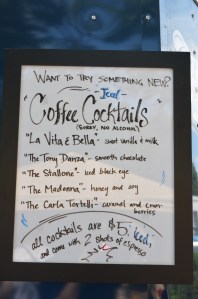 WANT TO TRY SOMETHING NEW?
- Iced -
"Coffee Cocktails"
(SORRY, NO ALCOHOL)
"LA Vita É Bella" - sweet vanilla & milk
"The Tony Danza" - smooth chocolate
"The Stallone" - iced black eye
"The Madonna" - honey and soy
"The Carla Tortelli" - caramel and
berries
all cocktails are $5, iced,
and come with 2 shots of espresso